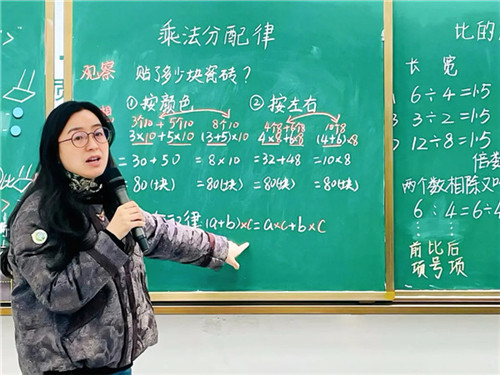 乘法分配律
观察 贴了多少块瓷砖？
①按颜色 ②按左右
3个10+5个10 8个10 4个8+6个8 10个8
3×10+5×10 (3+5)×10 4×8+6×8 (4+6)×8
=30+50 =8×10 =32+48 =10×8
=80(块) =80(块) =80(块) =80(块)
律(a+b)×c=a×c+b×c
比的
长 宽
6÷4=1.5
3÷2=1.5
12÷8=1.5
倍数
两个数相除又
6:4=6÷4
前 比 后
项 号 项